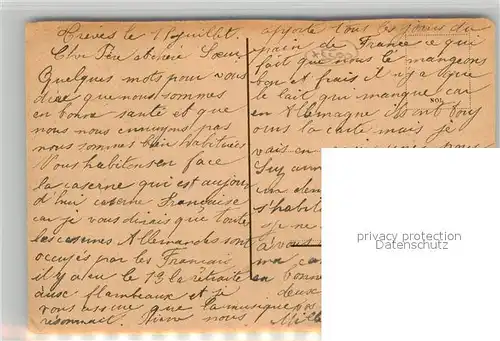 Treves le 15 juillet.
Cher Père et chère Sœur
Quelques mots pour vous
dire que nous sommes
en bonne santé et que
nous nous ennuyons pas
nous sommes bien habitués
Nous habitons en face
la caserne qui est aujour
d'hui caserne Française
car je vous dirais que toute
les casernes Allemandes sont
occupés par les Français
il y a eu le 13 la retraite
aux flambeaux et je
vous assure que la musique
résonnait. nous
apporte tous les jours du
pain de France ce qui
fait que nous le mangeons
bon et frais il n'y a que
le lait qui manque car
en Allemagne ils ont tous
la carte mais je
vais en
un
s'habit
je ne
a vous
ma ca
en bonne
deux
Mill
privacy protection
Datenschutz